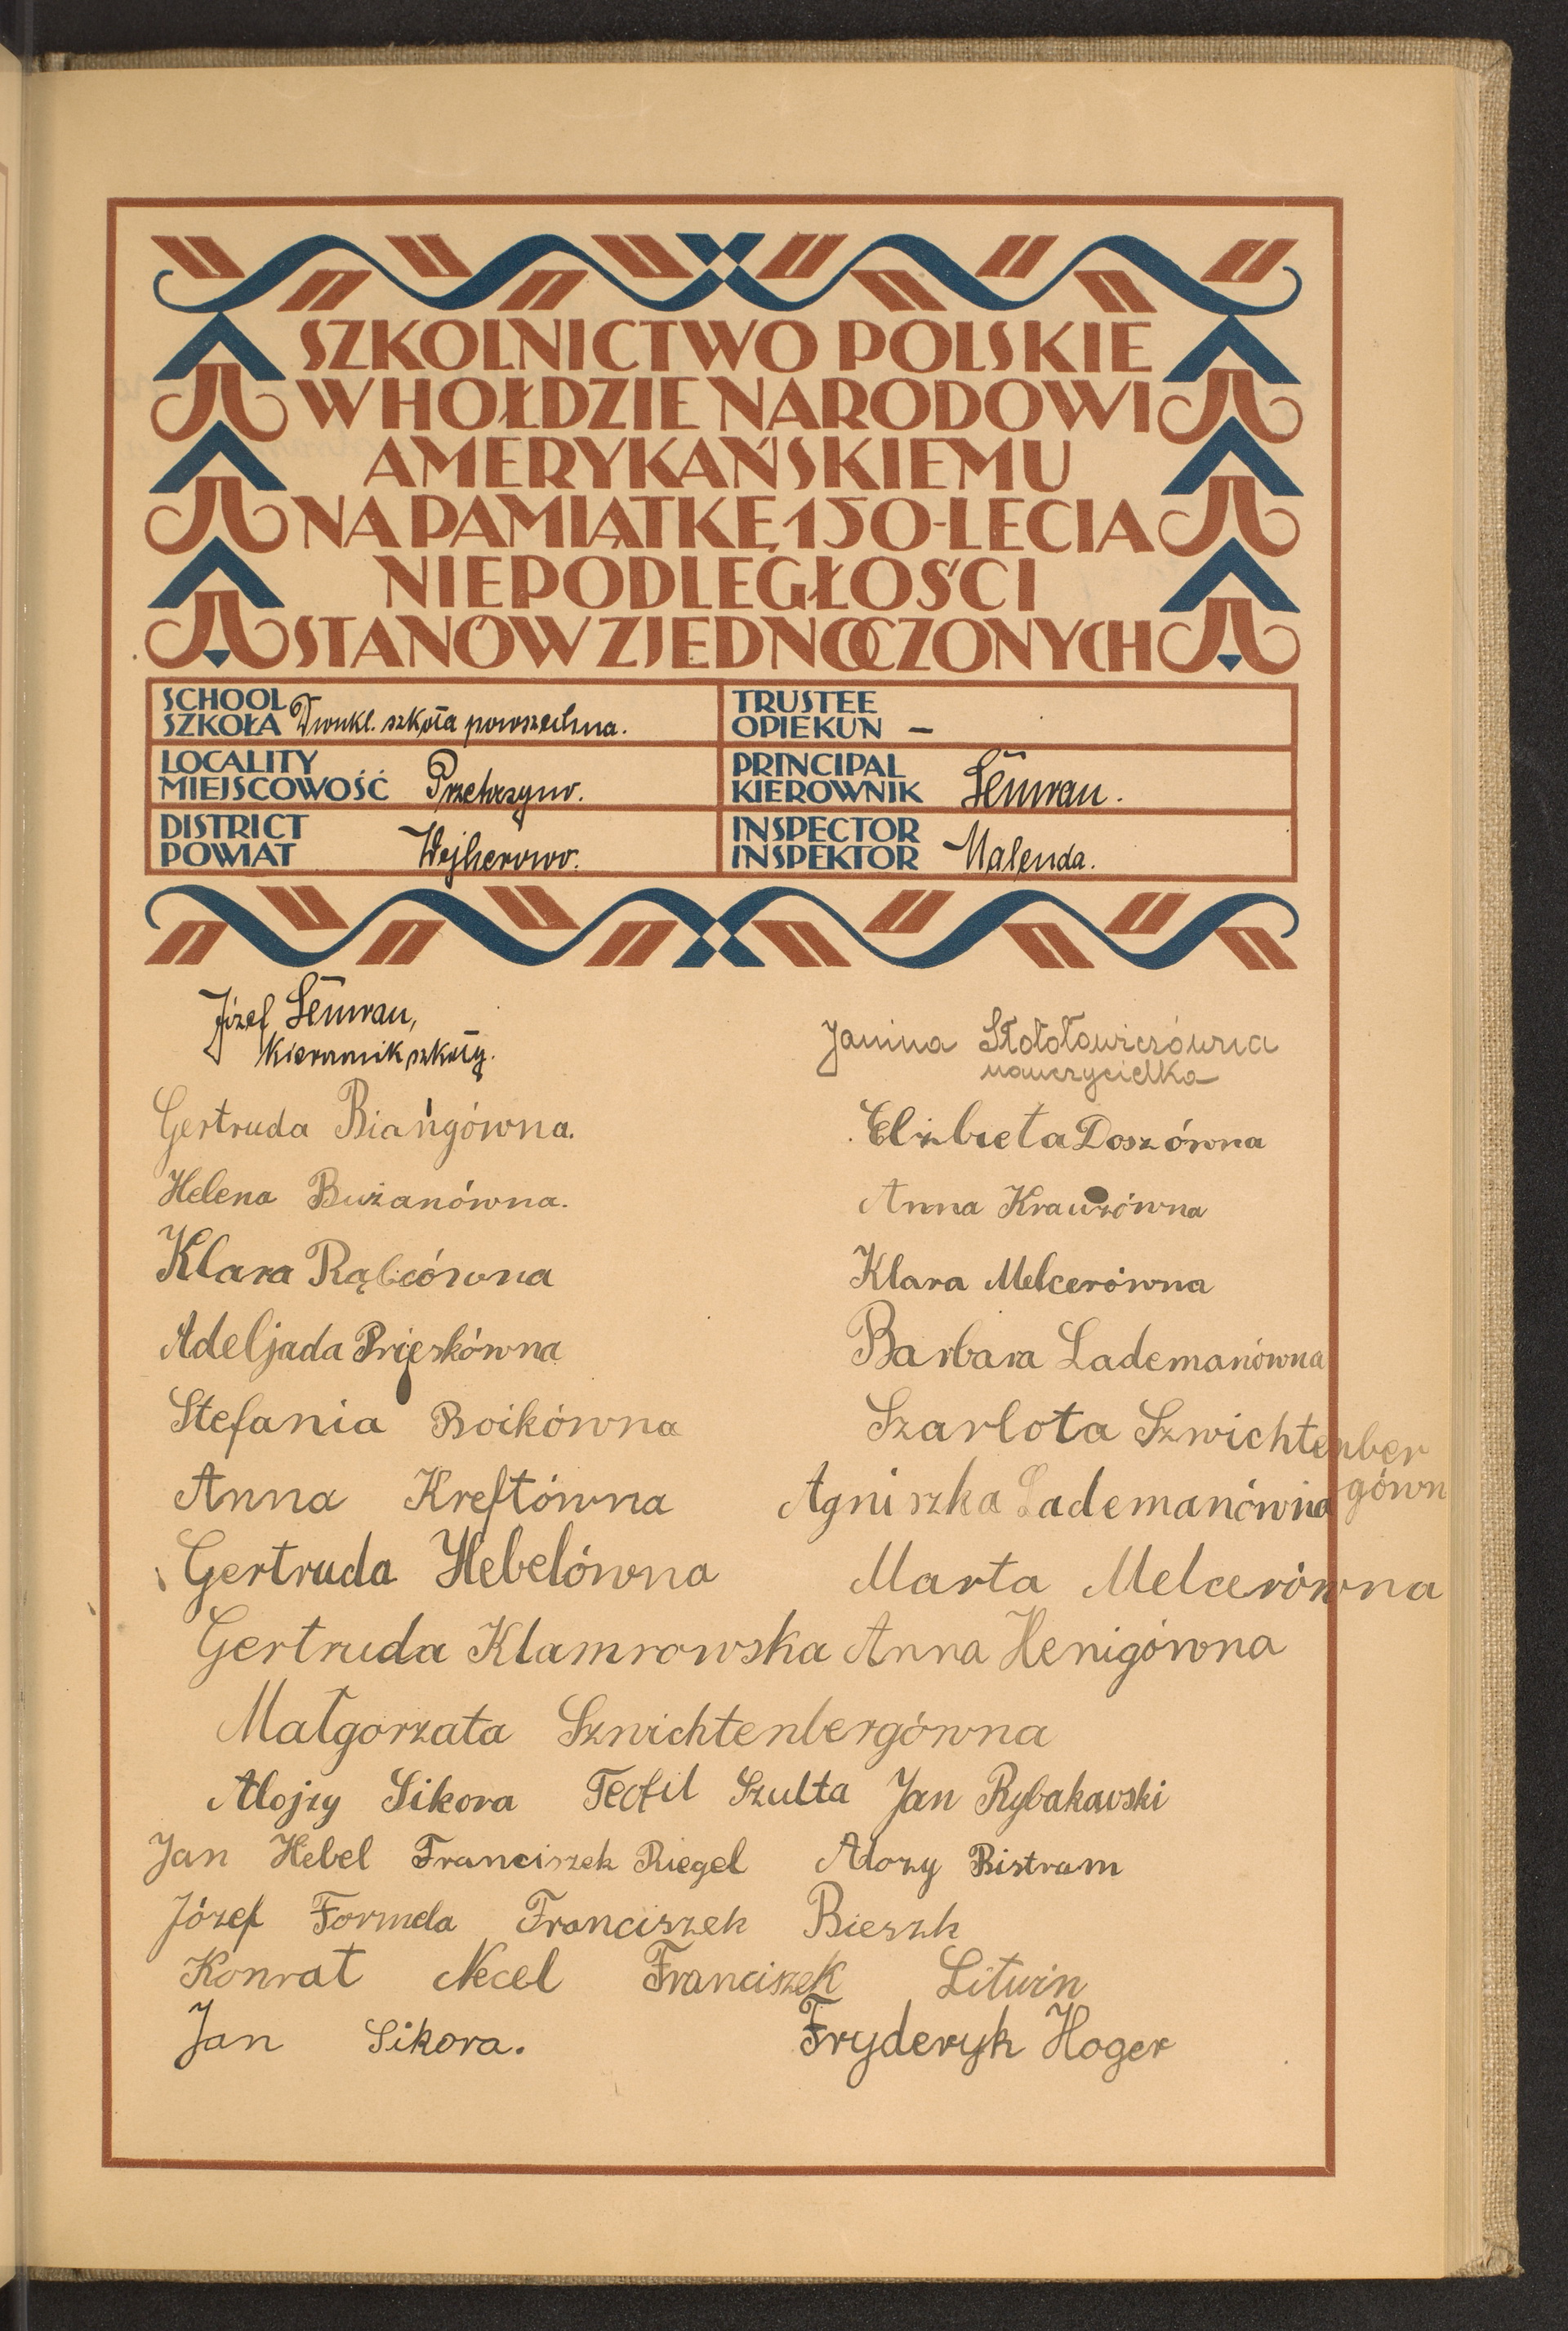 SZKOLNICTWO POLSKIE
W HOŁDZIE NARODOWI
AMERYKAŃSKIEMU
NA PAMIĄTKĘ 150-LECIA
NIEPODLEGŁOŚCI
STANÓW ZJEDNOCZONYCH
SCHOOL
SZKOŁA Dwukl. szkoła powszechna.
TRUSTEE
OPIEKUN –
LOCALITY
MIEJSCOWOŚĆ
PRINCIPAL
KIEROWNIK
DISTRICT
POWIAT Wejherowo.
INSPECTOR
INSPEKTOR Malenda.
Józef
kierownik szkoły.
Janina Stołołowiczówna
nauczycielka
Gertruda Biańgówna.
Elżbieta Doszówna
Helena Bużanówna.
Anna
Klara Rąbcówna
Klara Melcerówna
Adeljada
Barbara Lademanówna
Stefania Boikówna
Szarlota Szwichtenber
gówn
Anna Kreftówna
Agniszka Lademanówna
Gertruda Hebelówna
Marta Melcerówna
Gertruda Klamrowska Anna Henigówna
Małgorzata Szwichtenbergówna
Alojzy Sikora Teofil Szulta Jan Rybakawski
Jan Hebel Franciszek Riegel Alozy Bistram
Józef Formela Franciszek Bieszk
Konrat Necel Franciszek Litwin
Jan Sikora. Fryderyk Hoger